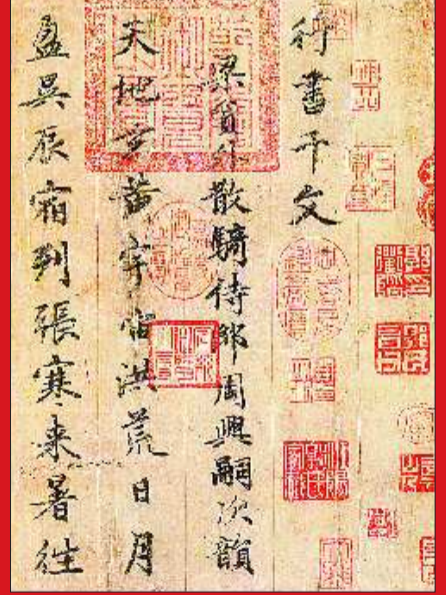 行書千文
梁員外散騎侍郎周興嗣次韻
天地玄黃宇宙洪荒日月
盈昃辰宿列張寒来暑往